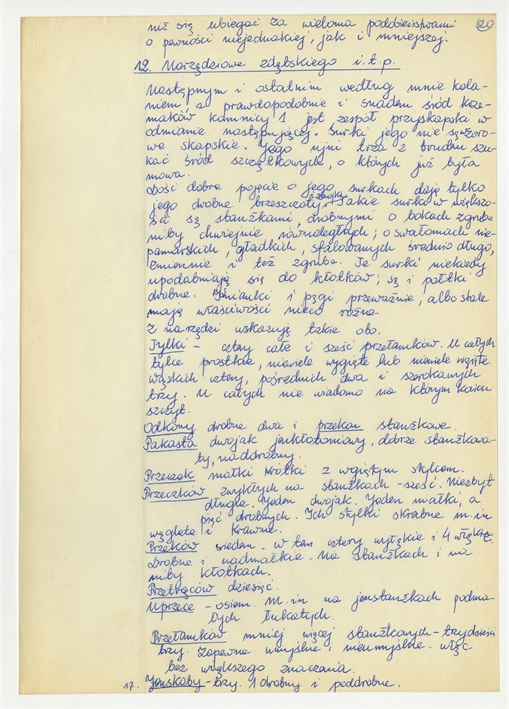 niż się ubiegać za wieloma poddzieistwami
o pewności niejednakiej, jak i mniejszej.
20
12. Narzędziowe zdębskiego i.t.p.
Następnym i ostatnim według mnie kola-
niem, a prawdopodobnie i śladem śród krze-
maków kamnicy 1 jest zespół przyskapski w
odmianie następującej. Surki jego nie są żoro-
we skapskie. Jego ujni trza z trudem szu-
kać śród szczątkowych, o których już była
mowa.
Dość dobre pojęcie o jego surkach daję tylko
jego drobne brzeszczoty. Jakie surki w większo-
ści są stanżkami, drobnymi o bokach zgruba
niby chwiejnie równoległych; o swałomach nie-
pamurskich, gładkich, sfalowanych średnio długo,
zmiennie i też zgruba. Te surki niekiedy
upodabniają się do kłotków; są i patki
drobne. Pnianki i pęgi przeważnie, albo stale
mają właściwości nieco różne.
Z narzędzi wskazują takie oto.
Tylki - cztery całe i sześć przełamków. U całych
tylce prostkie, niewiele wygięte lub niewiele wgięte
wąskich cztery, pośrednich dwa i szerokawych
trzy. U całych nie wiadomo na którym końcu
szczyt.
Odkony drobne dwa i przekon stanżkowe.
Pakasta dwojak jenkłotomiowy, dobrze stanżkowa-
ty, naddrobny.
Przeczok małki krótki z wgiętym stylcem.
Przeczków zwykłych na stanżkach - sześć. Niezbyt
długie. Jeden dwojak. Jeden małki, a
pięć drobnych. Ich stylki skrabne m.in
wgłęte i krawne.
Przeków siedam. W tam cztery wyłzkie i 4 większe.
Drobne i nadmałkie. Na stanżkach i na
niby kłotkach.
Przetrąców dziesięć.
Uprzęce - osiem. M.in na jenstanżkach podma-
łych łukatych.
Przełamków mniej więcej stanżkowych - trzydzieści
trzy. Zapewne umyślne i nieumyślne. Więc
bez większego znaczenia.
17. Jenskaby - trzy. 1 drobny i poddrobne.